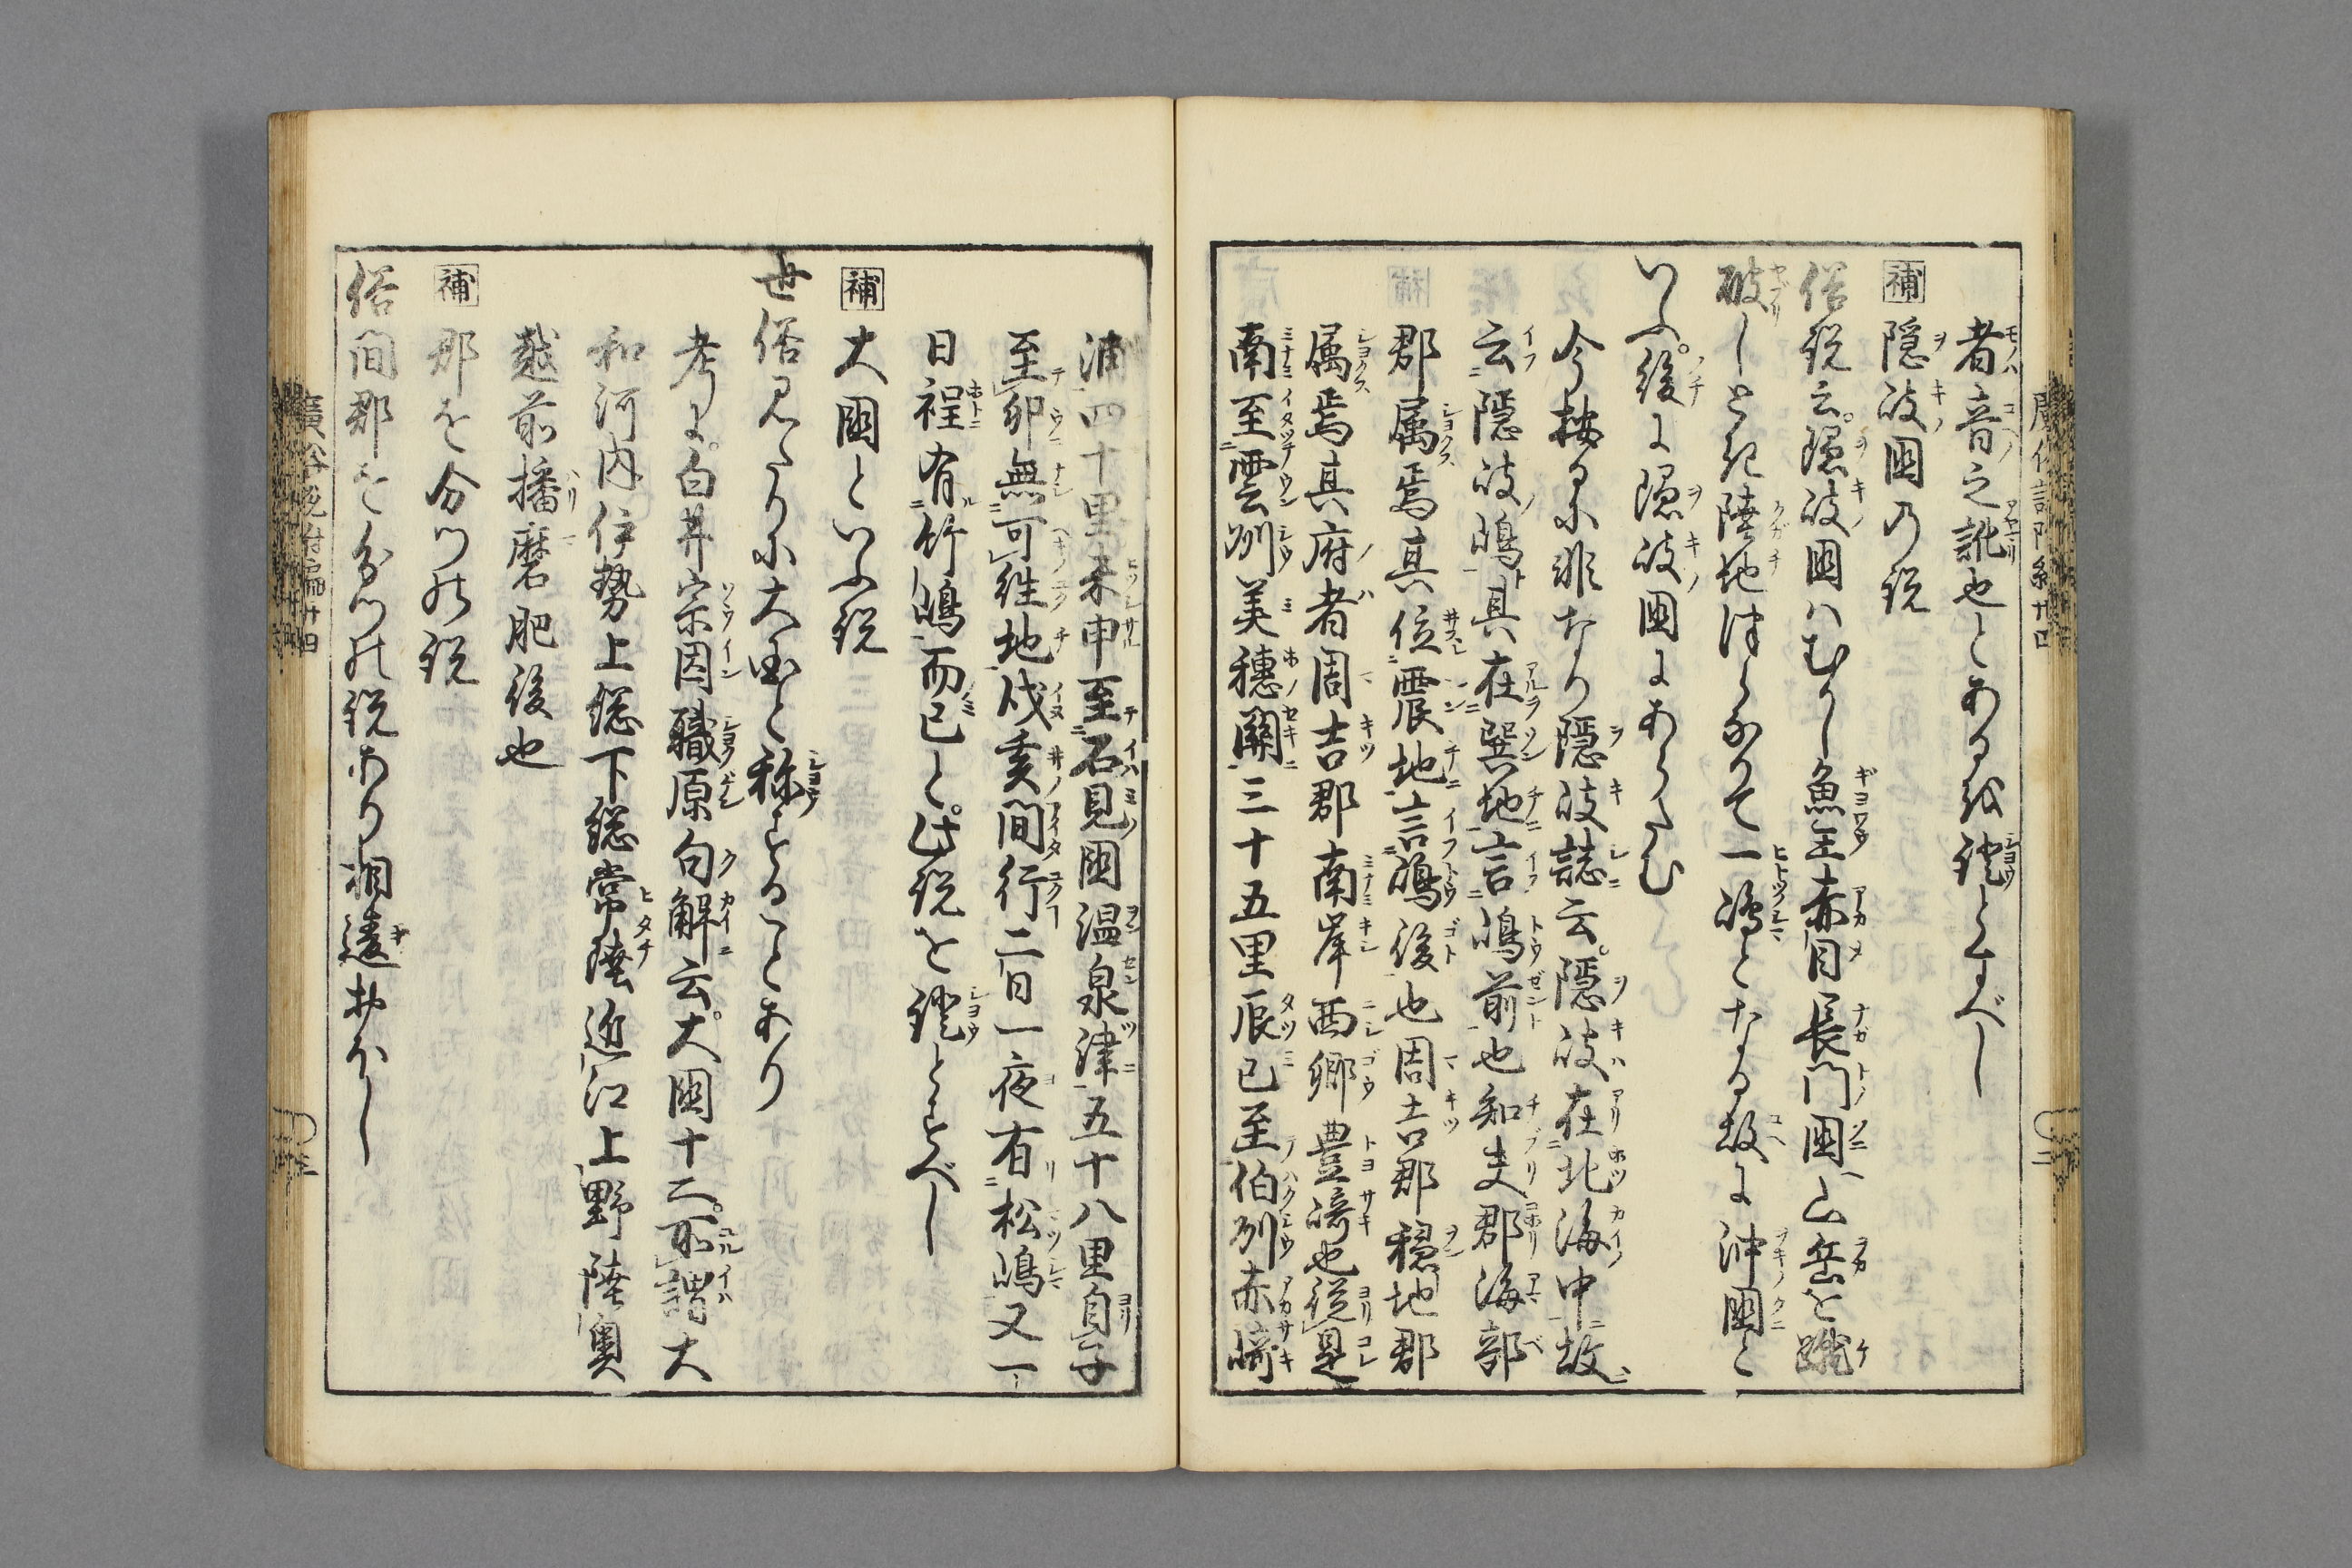 者音之訛也とある越證とすべし
補 隠岐国乃説
俗説云隠岐国ハむかし魚王赤目長門国ニ山岳を蹴
破しとき陸地はなれて一嶋となる故に沖国と
いふ後に隠岐国にあらたむ
今按るに非なり隠岐誌云隠岐在北海中故
云隠岐嶋其在巽地言嶋前也知夫郡海部
郡属焉其位震地言嶋後也周吉郡穏地郡
属焉其府者周吉郡南岸西郷豊﨑也従是
南至雲州美穂關三十五里辰巳至伯州赤﨑
浦四十里未申至石見国温泉津五十八里自子
至卯無可往地戌亥間行二日一夜有松嶋又一
日程有竹嶋而已と此説を證とすべし
補 大国といふ説
世俗見たりに大国と称することあり
考に白井宗因職原句解云大国十二所謂大
和河内伊勢上総下総常陸近江上野陸奥
越前播磨肥後也
補 郡を分つの説
俗間郡を分つの説あり相違おほし
廣俗説附編廿四